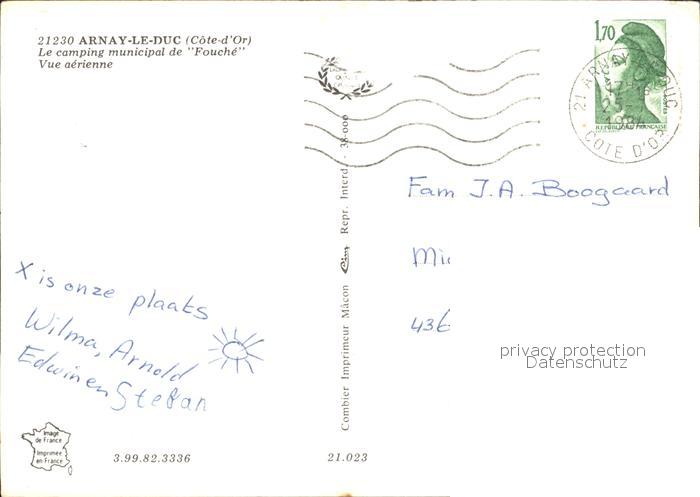 21230 ARNAY-LE-DUC (Côte-d'Or)
Le camping municipal de "Fouché"
Vue aérienne
1,70
REPUBLIQUE FRANÇAISE
21 ARNAY LE DUC
25-7
1984
COTE D'OR
Fam J.A. Boogaard
436
privacy protection
Datenschutz
X is onze plaats
Wilma, Arnold
Edwin en Stefan
Combier Imprimeur Mâcon Cim Repr. Interd. - 38-000
Image
de France
Imprimée
en France
3.99.82.3336
21.023